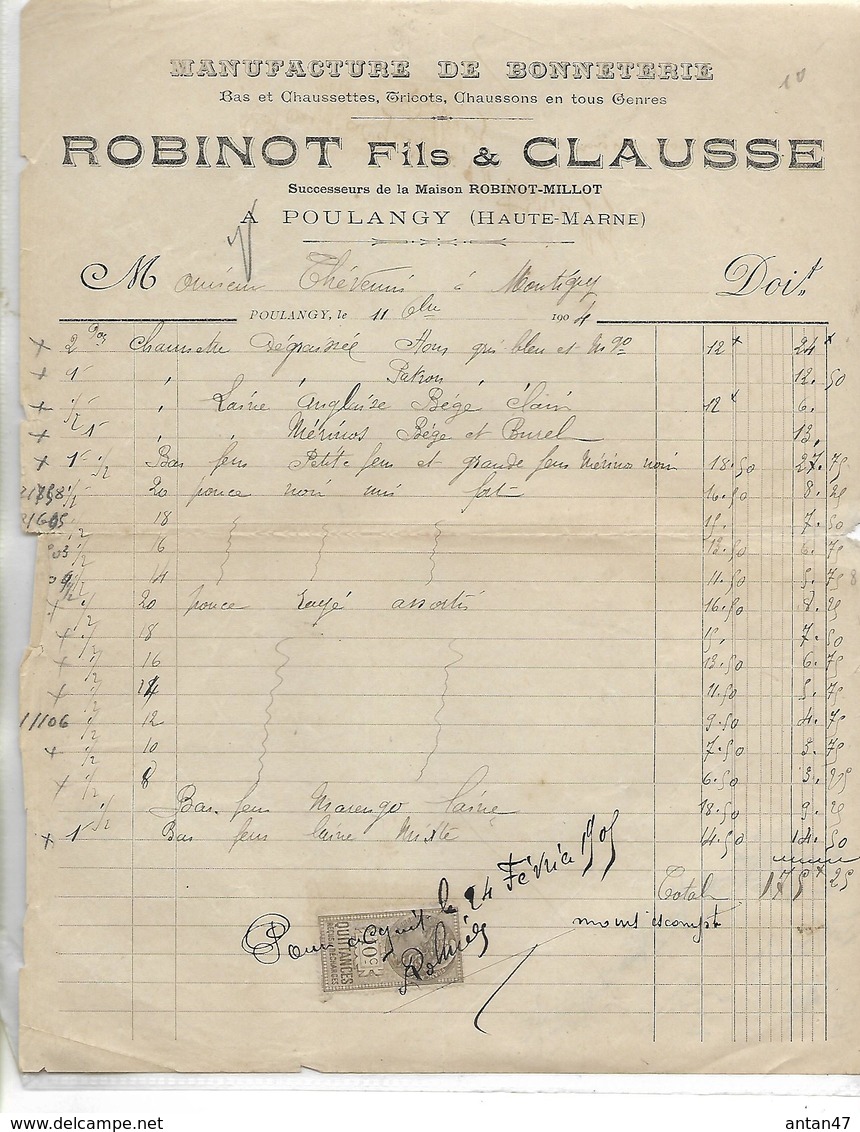 10
MANUFACTURE DE BONNETERIE
Bas et Chaussettes, Tricots, Chaussons en tous Genres
ROBINOT Fils & CLAUSSE
Successeurs de la Maison ROBINOT-MILLOT
A POULANGY (HAUTE-MARNE)
Monsieur Thévenin à Montigny Doit
POULANGY, le 11 1904
x 2 Chaussette Dégraissée gris bleu et 12 x 24 x
x 1 " " " 12.50
x 1/2 " Laine Anglaise Bége clair 12 x 6.
x 1 " " Mérinos Bége et Burel 13.
x 1 1/2 Bas fem Petite fem et grande fem Mérinos noir 18.50 27.75
1/2 20 pouce noir fort 16.50 8.25
1/2 18 15. 7.50
1/2 16 13.50 6.75
1/2 14 11.50 5.75
x 1/2 20 pouce rayé assortis 16.50 8.25
x 1/2 18 15. 7.50
x 1/2 16 13.50 6.75
x 1/2 14 11.50 5.75
1/2 12 9.50 4.75
x 1/2 10 7.50 3.75
x 1/2 8 6.50 3.25
1/2 Bas fem Marengo laine 18.50 9.25
x 1 Bas fem laine Mixte 14.50 14.50
Total 175 x 25
moins escompte
Pour acquit le 24 Février 1905
QUITTANCES
10c
antan47